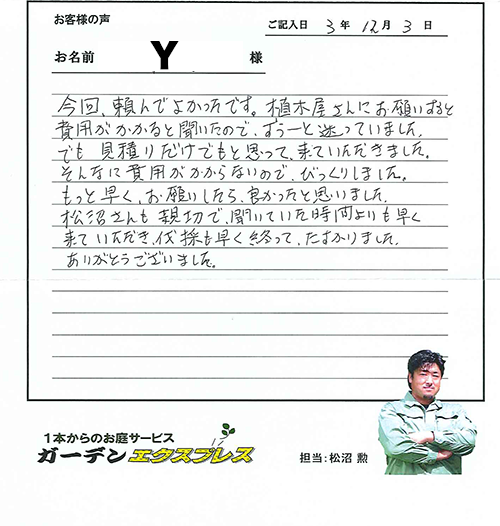 お客様の声
ご記入日 3年 12月 3日
お名前 Y 様
今回、頼んでよかったです。植木屋さんにお願いすると
費用がかかると聞いたので、ずうーと迷っていました。
でも 見積りだけでもと思って、来ていただきました。
そんなに費用がかからないので、びっくりしました。
もっと早く、お願いしたら、良かったと思いました。
松沼さんも親切で、聞いていた時間よりも早く
来ていただき、伐採も早く終って、たすかりました。
ありがとうございました。
1本からのお庭サービス
ガーデンエクスプレス
担当:松沼 勲